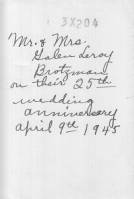 3X204
Mr. & Mrs.
Galen Leroy
Brotzman
on their 25th
wedding
anniversary
april 9th 1945